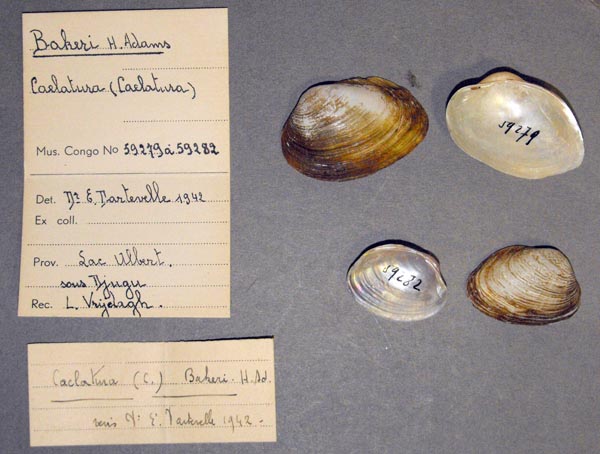 Bakeri H. Adams
Caelatura (Caelatura)
Mus. Congo No 59279 à 59282
Det. Dr E. Dartevelle 1942
Ex coll.
Prov. Lac Albert.
sous Djugu
Rec. L. Vrijdagh.
Caelatura (C.) Bakeri. H. Ad.
revis Dr E. Dartevelle 1942 -
59279
59282